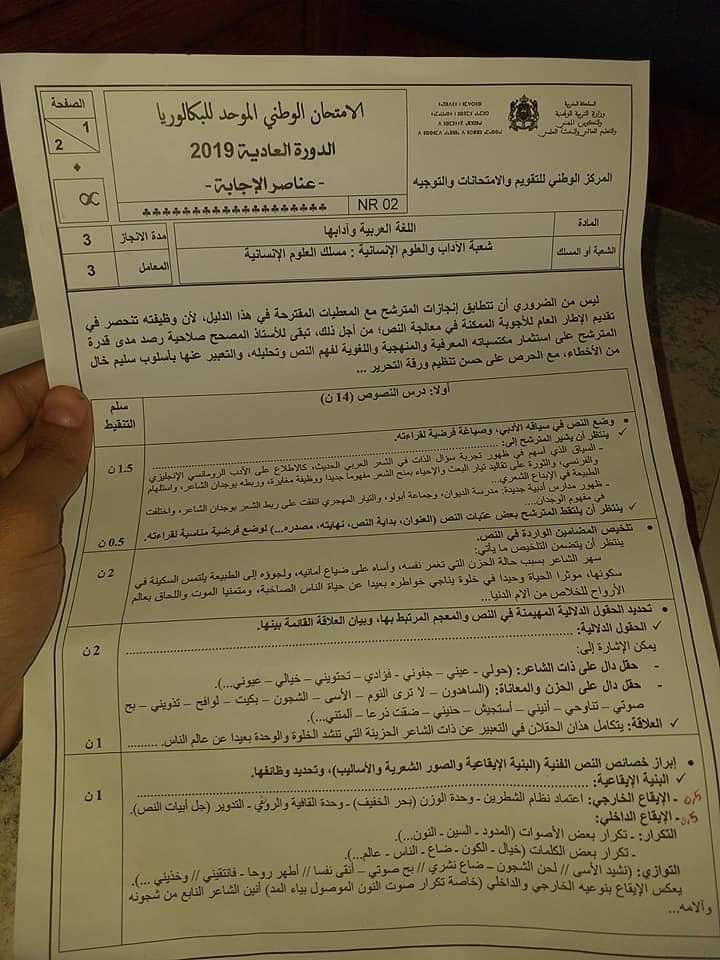 المملكة المغربية
وزارة التربية الوطنية
والتكوين المهني
والتعليم العالي والبحث العلمي
المركز الوطني للتقويم والامتحانات والتوجيه
الامتحان الوطني الموحد للبكالوريا
الدورة العادية 2019
-عناصر الإجابة-
NR 02
الصفحة
1
2
المادة
اللغة العربية وآدابها
مدة الانجاز
3
الشعبة أو المسلك
شعبة الآداب والعلوم الإنسانية : مسلك العلوم الإنسانية
المعامل
3
ليس من الضروري أن تتطابق إنجازات المترشح مع المعطيات المقترحة في هذا الدليل، لأن وظيفته تنحصر في
تقديم الإطار العام للأجوبة الممكنة في معالجة النص؛ من أجل ذلك، تبقى للأستاذ المصحح صلاحية رصد مدى قدرة
المترشح على استثمار مكتسباته المعرفية والمنهجية واللغوية لفهم النص وتحليله، والتعبير عنها بأسلوب سليم خال
من الأخطاء، مع الحرص على حسن تنظيم ورقة التحرير ...
أولا: درس النصوص (14 ن)
سلم
التنقيط
• وضع النص في سياقه الأدبي، وصياغة فرضية لقراءته.
✓ ينتظر أن يشير المترشح إلى:
- السياق الذي أسهم في ظهور تجربة سؤال الذات في الشعر العربي الحديث، كالاطلاع على الأدب الرومانسي الإنجليزي
والفرنسي، والثورة على تقاليد تيار البعث والإحياء بمنح الشعر مفهوما جديدا ووظيفة مغايرة، وربطه بوجدان الشاعر، واستلهام
الطبيعة في الإبداع الشعري...
1.5 ن
- ظهور مدارس أدبية جديدة: مدرسة الديوان، وجماعة أبولو، والتيار المهجري اتفقت على ربط الشعر بوجدان الشاعر، واختلفت
في مفهوم الوجدان....
✓ ينتظر أن يلتقط المترشح بعض عتبات النص (العنوان، بداية النص، نهايته، مصدره...) لوضع فرضية مناسبة لقراءته.
0.5 ن
• تلخيص المضامين الواردة في النص.
ينتظر أن يتضمن التلخيص ما يأتي:
سهر الشاعر بسبب حالة الحزن التي تغمر نفسه، وأساه على ضياع أمانيه، ولجوؤه إلى الطبيعة يلتمس السكينة في
سكونها، موثرا الحياة وحيدا في خلوة يناجي خواطره بعيدا عن حياة الناس الصاخبة، ومتمنيا الموت واللحاق بعالم
الأرواح للخلاص من آلام الدنيا...
2 ن
• تحديد الحقول الدلالية المهيمنة في النص والمعجم المرتبط بها، وبيان العلاقة القائمة بينها.
✓ الحقول الدلالية:
2 ن
يمكن الإشارة إلى:
- حقل دال على ذات الشاعر: (حولي - عيني – جفوني - فؤادي – تحتويني – خيالي – عيوني...).
- حقل دال على الحزن والمعاناة: (الساهدون – لا ترى النوم – الأسى – الشجون – بكيت – لوافح – تذويني – بح
صوتي – تناوحي – أنيني – أستجيش – حنيني – ضقت ذرعا – ألمتني...).
✓ العلاقة: يتكامل هذان الحقلان في التعبير عن ذات الشاعر الحزينة التي تنشد الخلوة والوحدة بعيدا عن عالم الناس.
1 ن
• إبراز خصائص النص الفنية (البنية الإيقاعية والصور الشعرية والأساليب)، وتحديد وظائفها.
✓ البنية الإيقاعية:
1 ن
0,5 - الإيقاع الخارجي: اعتماد نظام الشطرين - وحدة الوزن (بحر الخفيف) - وحدة القافية والروي - التدوير (جل أبيات النص).
0,5 - الإيقاع الداخلي:
التكرار: - تكرار بعض الأصوات (المدود - السين - النون...).
- تكرار بعض الكلمات (خيال - الكون - ضاع - الناس - عالم...).
التوازي: (نشيد الأسى // لحن الشجون – ضاع نشري // بح صوتي – أنقى نفسا // أطهر روحا - فانتقيني // وخذيني ...).
يعكس الإيقاع بنوعيه الخارجي والداخلي (خاصة تكرار صوت النون الموصول بياء المد) أنين الشاعر النابع من شجونه
وآلامه...